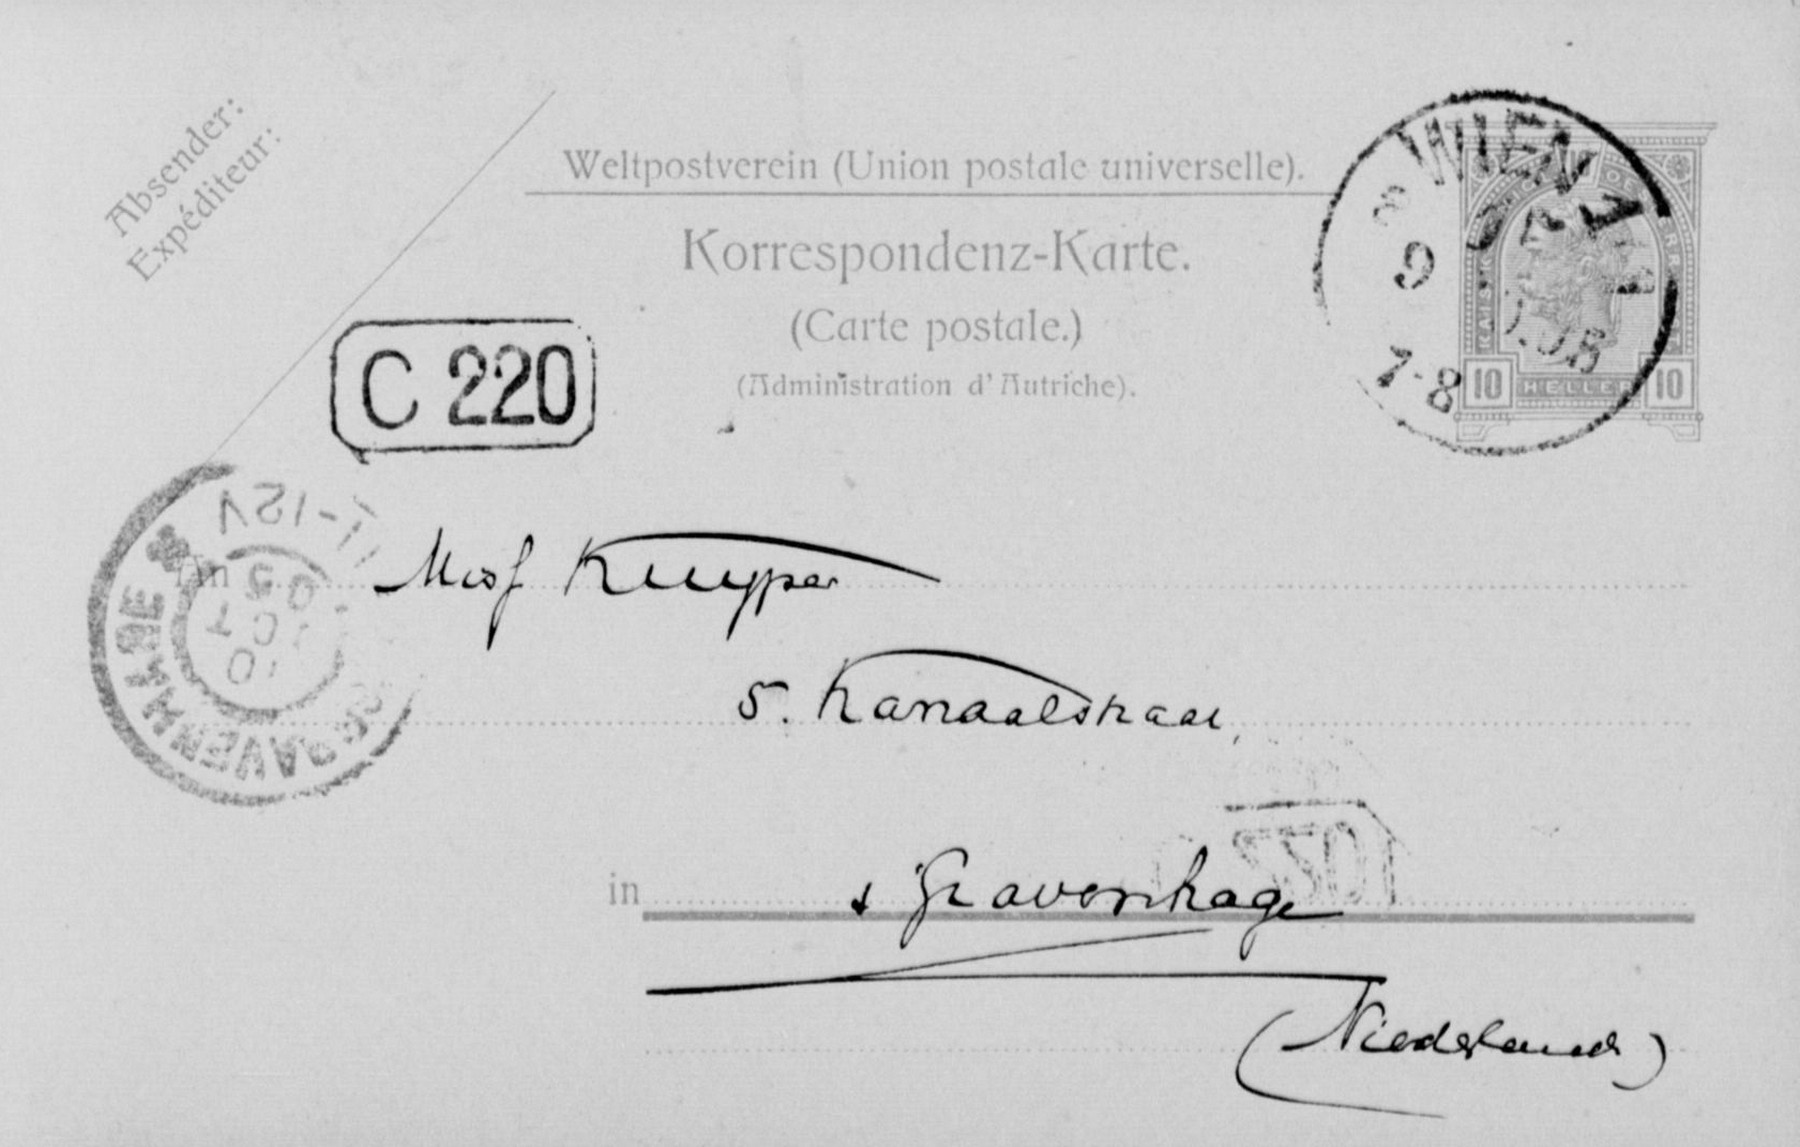 Absender:
Expéditeur:
Weltpostverein (Union postale universelle).
Korrespondenz-Karte.
(Carte postale.)
(Administration d'Autriche).
WIEN 1
8
9
7-8
KAIS. K. OESTERR.
10 HELLER 10
C 220
'SGRAVENHAGE
11-12V
10
OCT
05
An Miss Kuyper
5. Kanaalstraat
in s Gravenhage
(Niederlande)